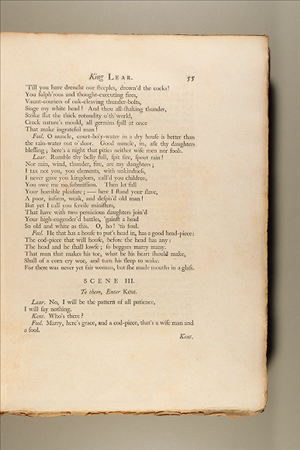 King LEAR. 55
'Till you have drencht our steeples, drown'd the cocks!
You sulph'rous and thought-executing fires,
Vaunt-couriers of oak-cleaving thunder-bolts,
Singe my white head! And thou all-shaking thunder,
Strike flat the thick rotundity o'th'world,
Crack nature's mould, all germins spill at once
That make ingrateful man!
Fool. O nuncle, court-holy-water in a dry house is better than
the rain-water out o'door. Good nuncle, in, ask thy daughters
blessing; here's a night that pities neither wise men nor fools.
Lear. Rumble thy belly full, spit fire, spout rain!
Nor rain, wind, thunder, fire, are my daughters;
I tax not you, you elements, with unkindness,
I never gave you kingdom, call'd you children,
You owe me no submission. Then let fall
Your horrible pleasure; — here I stand your slave,
A poor, infirm, weak, and despis'd old man!
But yet I call you servile ministers,
That have with two pernicious daughters join'd
Your high-engender'd battles, 'gainst a head
So old and white as this. O, ho! 'tis foul.
Fool. He that has a house to put's head in, has a good head-piece:
The cod-piece that will house, before the head has any;
The head and he shall lowse; so beggars marry many.
That man that makes his toe, what he his heart should make,
Shall of a corn cry woe, and turn his sleep to wake.
For there was never yet fair woman, but she made mouths in a glass.
SCENE III.
To them, Enter Kent.
Lear. No, I will be the pattern of all patience,
I will say nothing.
Kent. Who's there?
Fool. Marry, here's grace, and a cod-piece, that's a wise man and
a fool.
Kent.